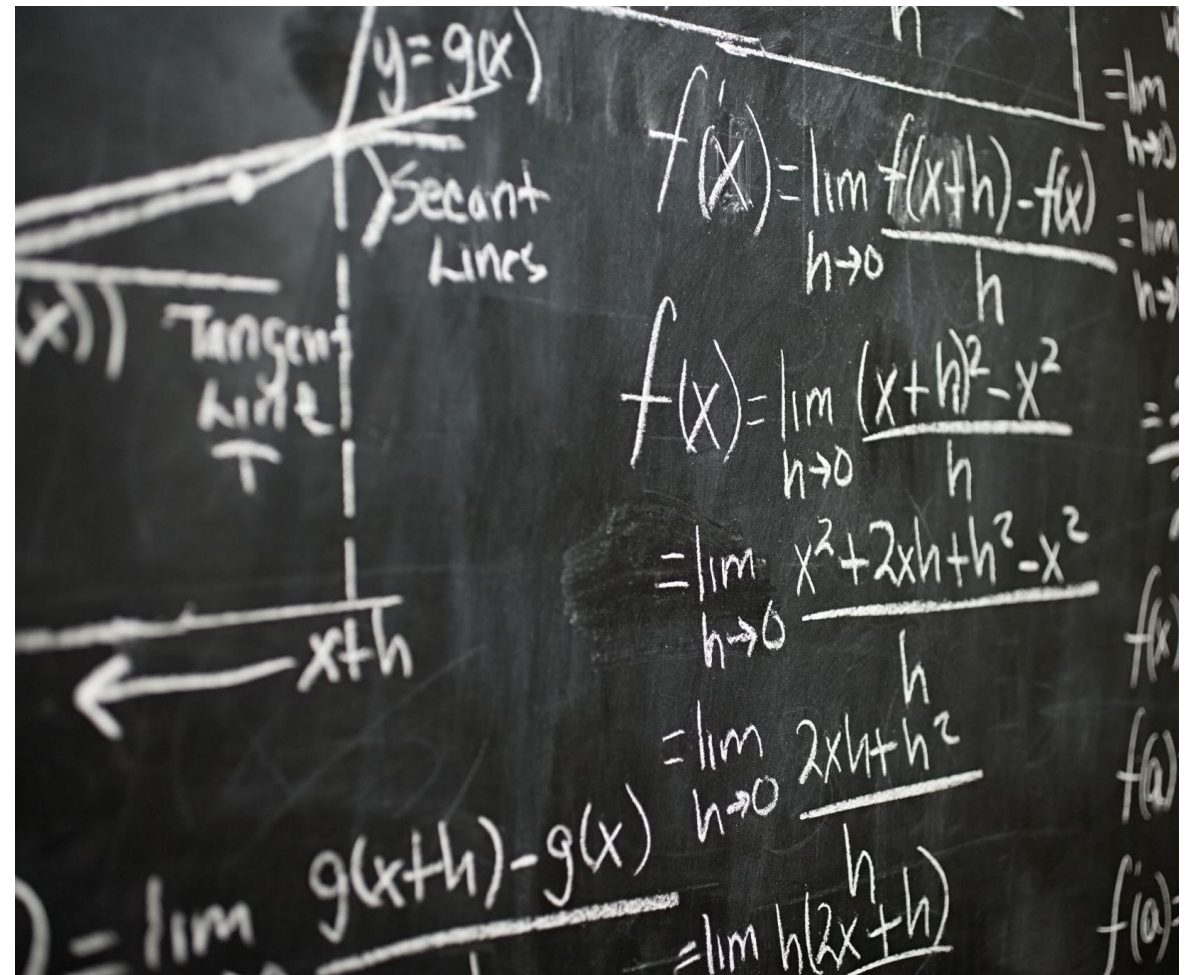 y = g(x)
Secant
Lines
(x))
Tangent
Line
T
x+h
) = lim g(x+h) - g(x)
h
f'(x) = lim f(x+h) - f(x)
h→0 h
f(x) = lim (x+h)² - x²
h→0 h
= lim x² + 2xh + h² - x²
h→0 h
= lim 2xh + h²
h→0 h
= lim h(2x+h)
= lim
h→0
= lim
h→
=
f(x)
f(a)
f'(a) =